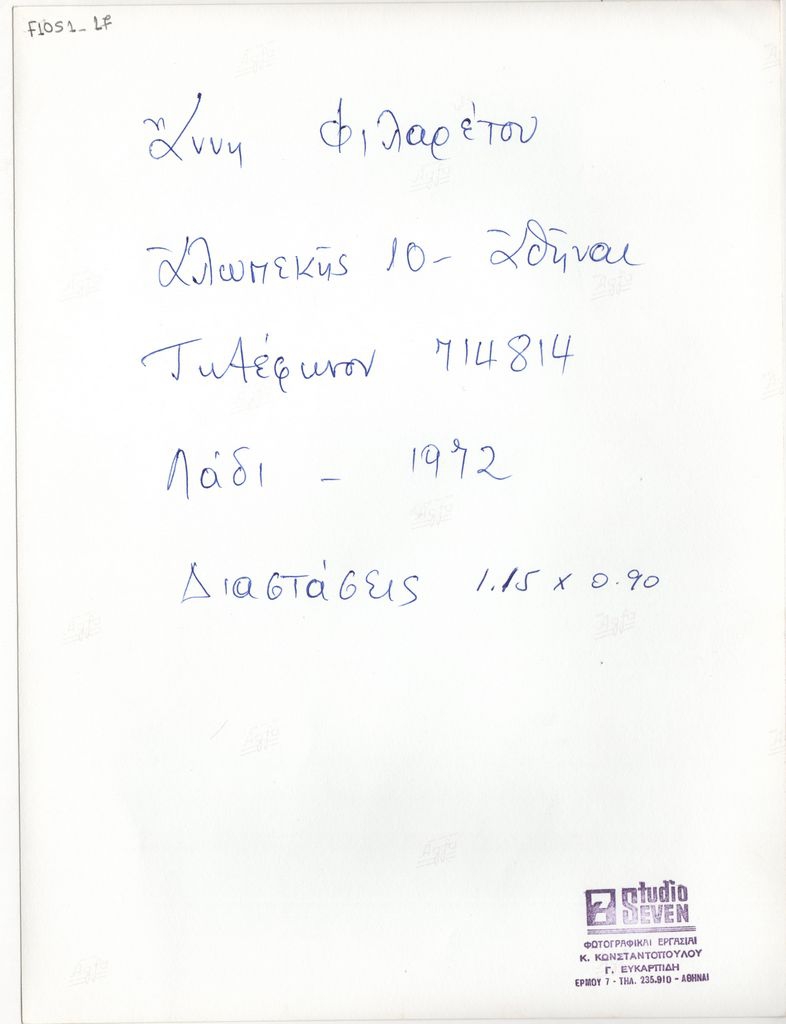 F1051_LF
Ἄννη Φιλαρέτου
Ἀλωπεκῆς 10 - Ἀθῆναι
Τηλέφωνον 714814
Λάδι - 1972
Διαστάσεις 1.15 x 0.90
Studio
SEVEN
ΦΩΤΟΓΡΑΦΙΚΑΙ ΕΡΓΑΣΙΑΙ
Κ. ΚΩΝΣΤΑΝΤΟΠΟΥΛΟΥ
Γ. ΕΥΚΑΡΠΙΔΗ
ΕΡΜΟΥ 7 - ΤΗΛ. 235.910 - ΑΘΗΝΑΙ